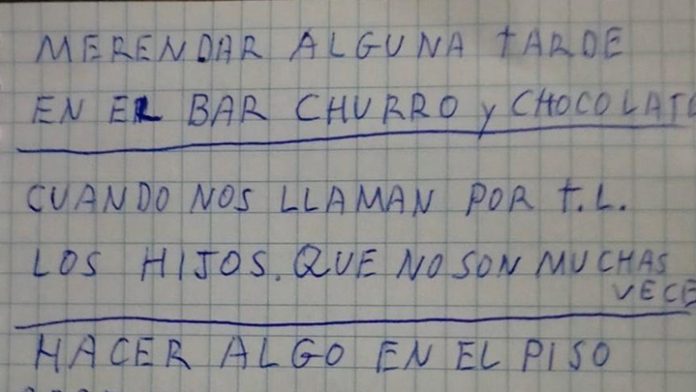 MERENDAR ALGUNA TARDE
EN EL BAR CHURRO Y CHOCOLATE
CUANDO NOS LLAMAN POR T.L.
LOS HIJOS. QUE NO SON MUCHAS
VECE
HACER ALGO EN EL PISO